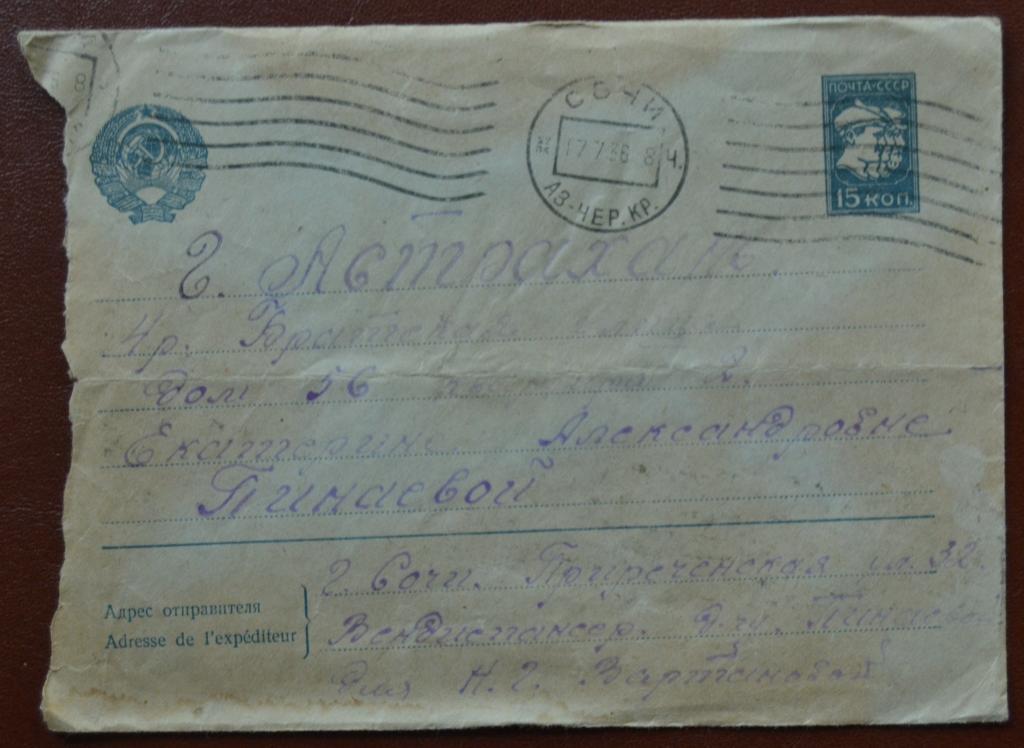 СОЧИ
17 7 36 8
Ч.
АЗ-ЧЕР. КР.
ПОЧТА-СССР
15 КОП.
г. Астрахань.
4р. Братская улица
Дом 56 квартира 2.
Екатерине Александровне
Пинаевой
Адрес отправителя
Adresse de l'expéditeur
г. Сочи. Приреченская ул. 32.
Вендиспансер. Д-ру. Пинаевой
для Н. Г. Вартановой